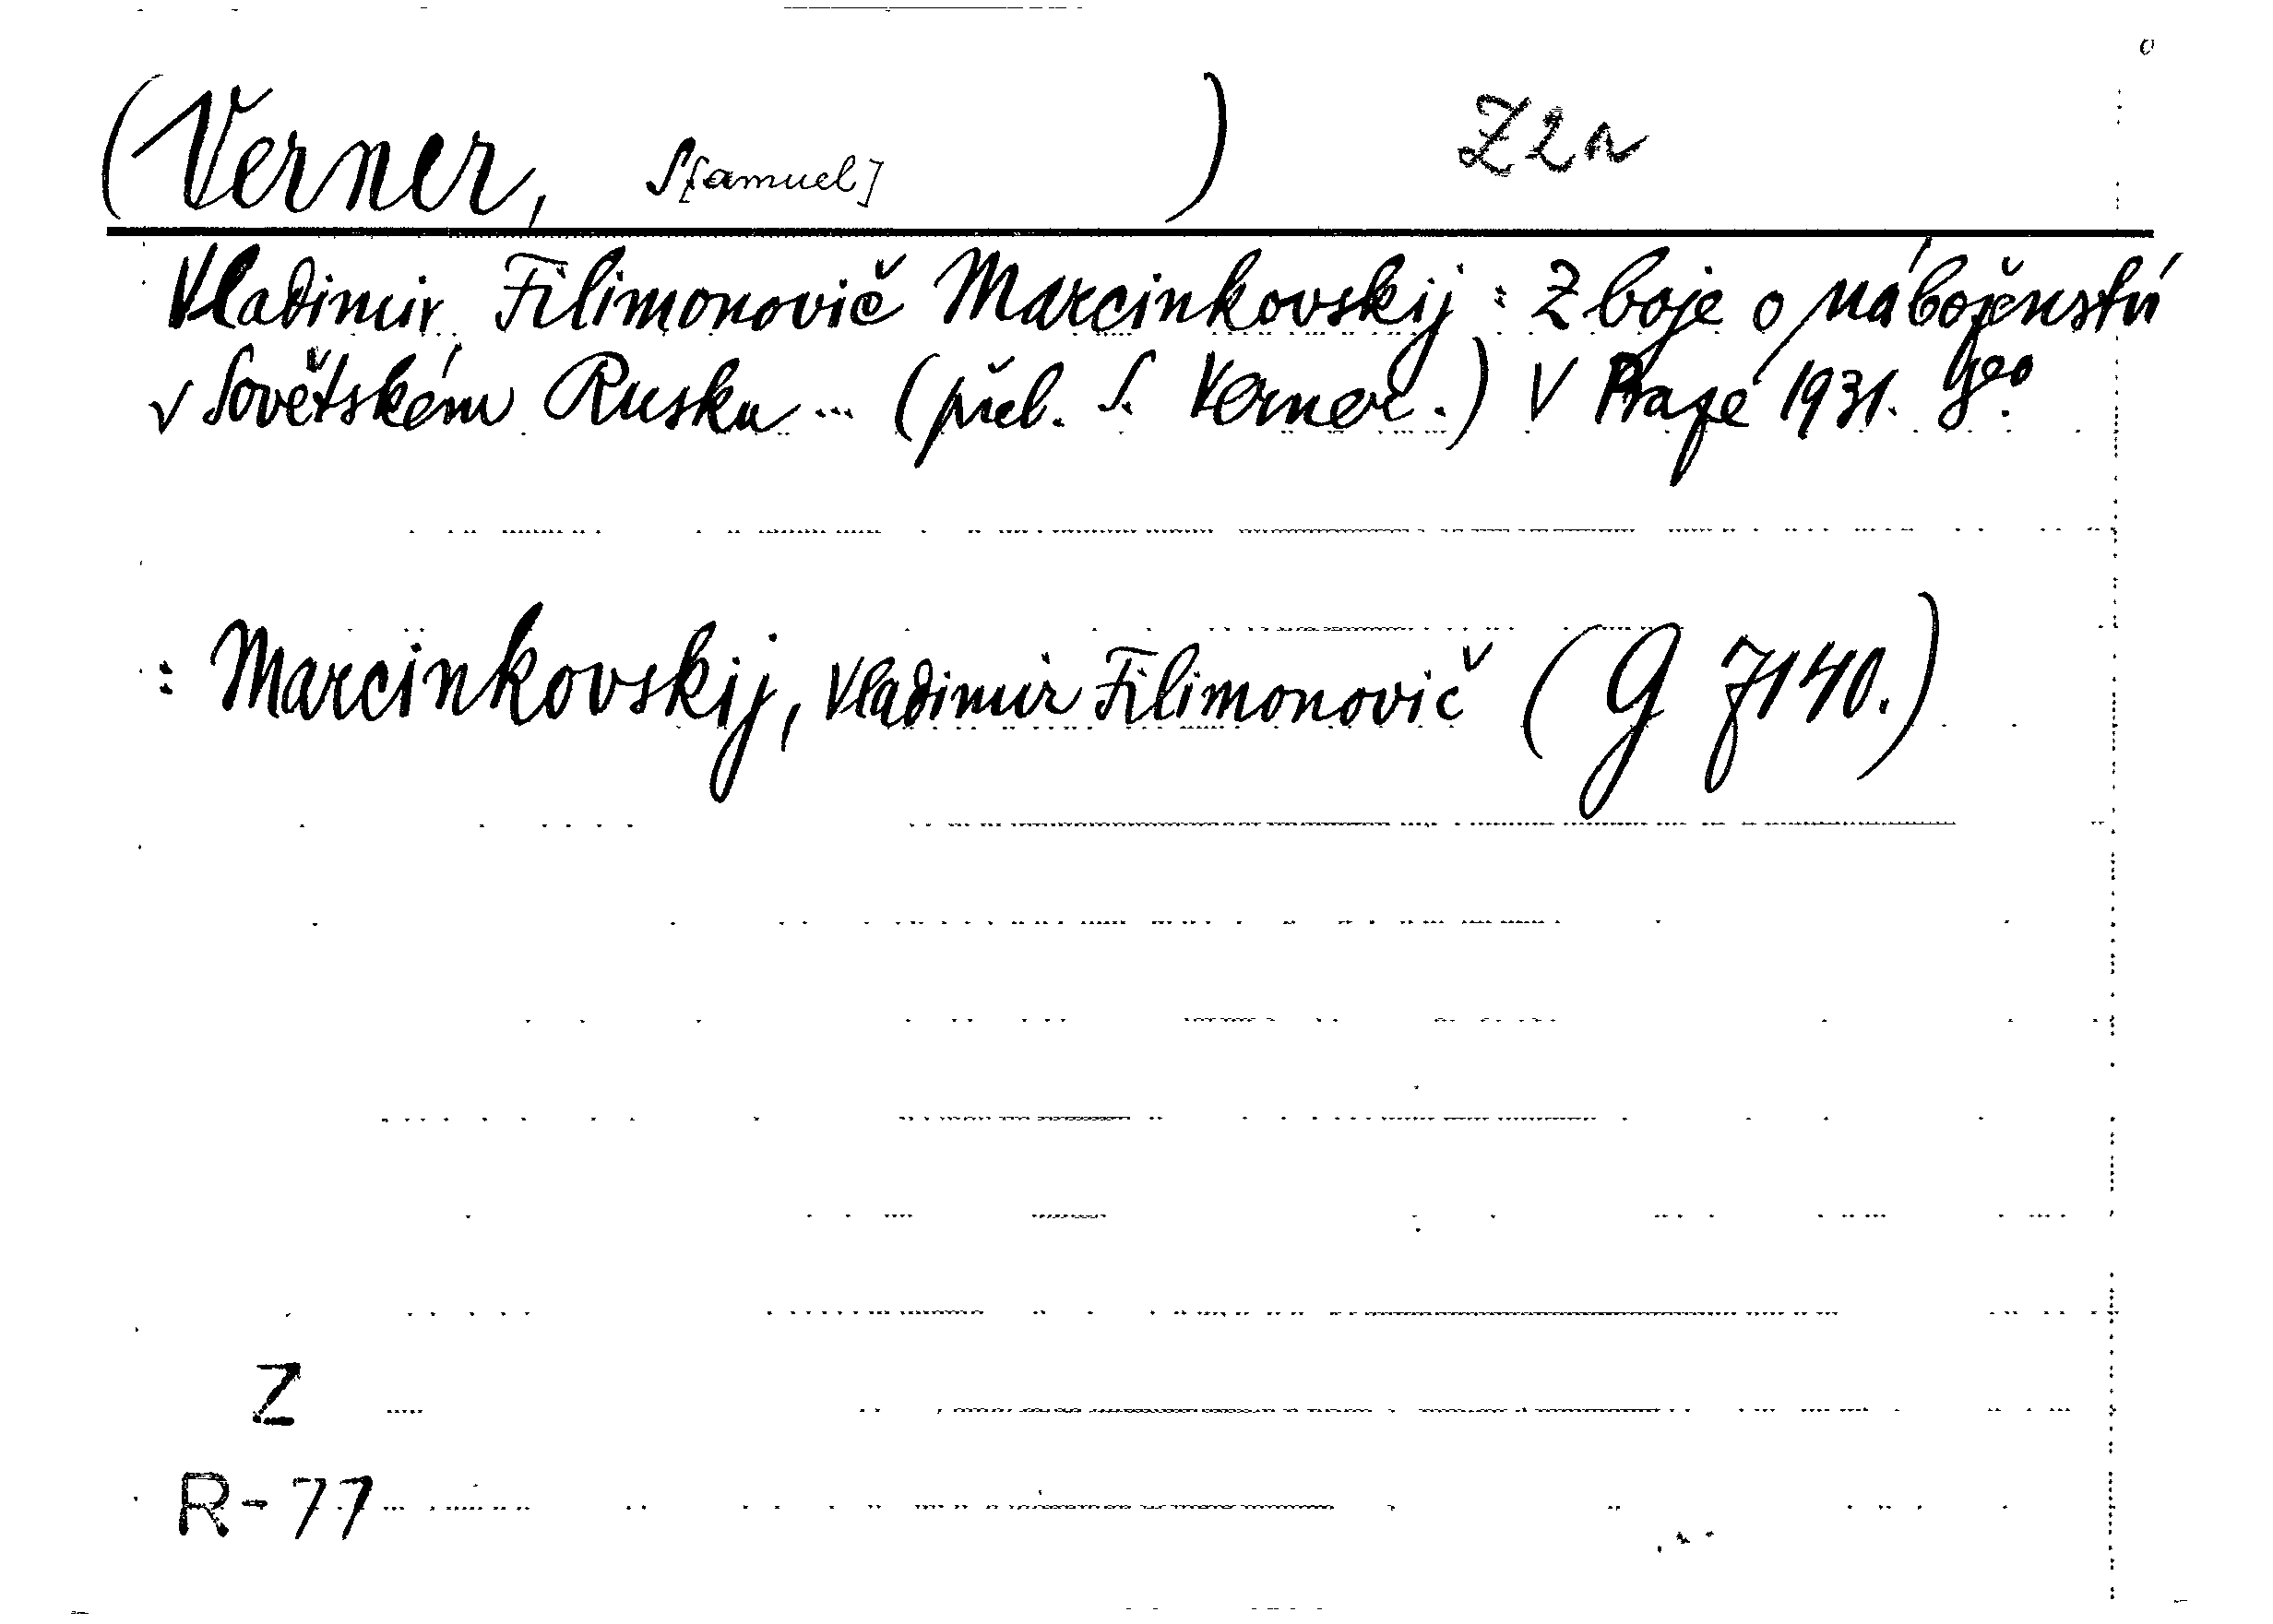 (Verner, S[amuel] ) Z2n
Vladimir Filimonovič Marcinkovskij: Z boje o náboženství
v Sovětském Rusku ... (přel. S. Verner.) V Praze 1931. 8°.
: Marcinkovskij, Vladimir Filimonovič (G 7140.)
Z
R-77